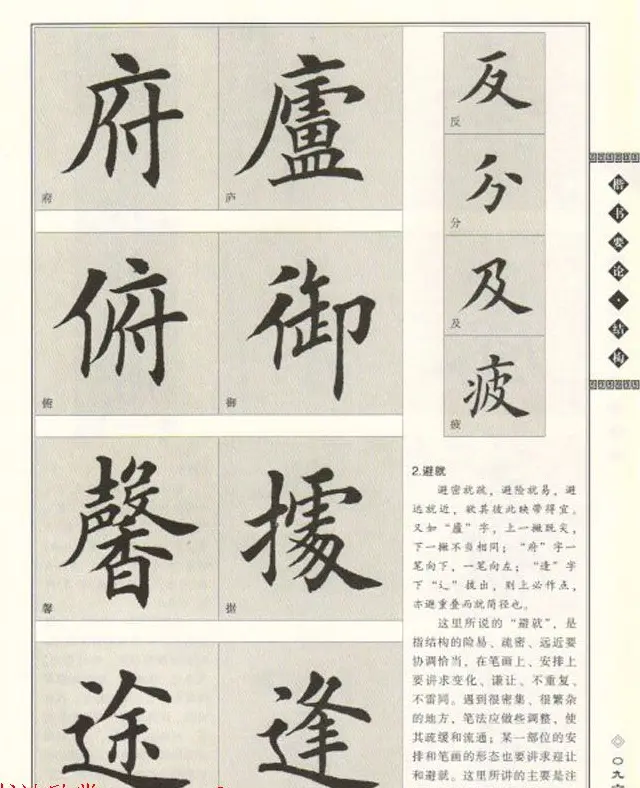 府 廬
府 庐
俯 御
俯 御
馨 據
馨 据
途 逢
反
反
分
分
及
及
疲
疲
2.避就
避密就疏，避险就易，避
远就近，欲其彼此映带得宜。
又如“廬”字，上一撇既尖，
下一撇不当相同；“府”字一
笔向下，一笔向左；“逢”字
下“辶”拔出，则上必作点，
亦避重叠而就简径也。
这里所说的“避就”，是
指结构的险易、疏密、远近要
协调恰当，在笔画上、安排上
要讲求变化、谦让、不重复、
不雷同。遇到很密集、很繁杂
的地方，笔法应做些调整，使
其疏缓和流通；某一部位的安
排和笔画的形态也要讲求迎让
和避就。这里所讲的主要是注
楷书要论·结构
〇九